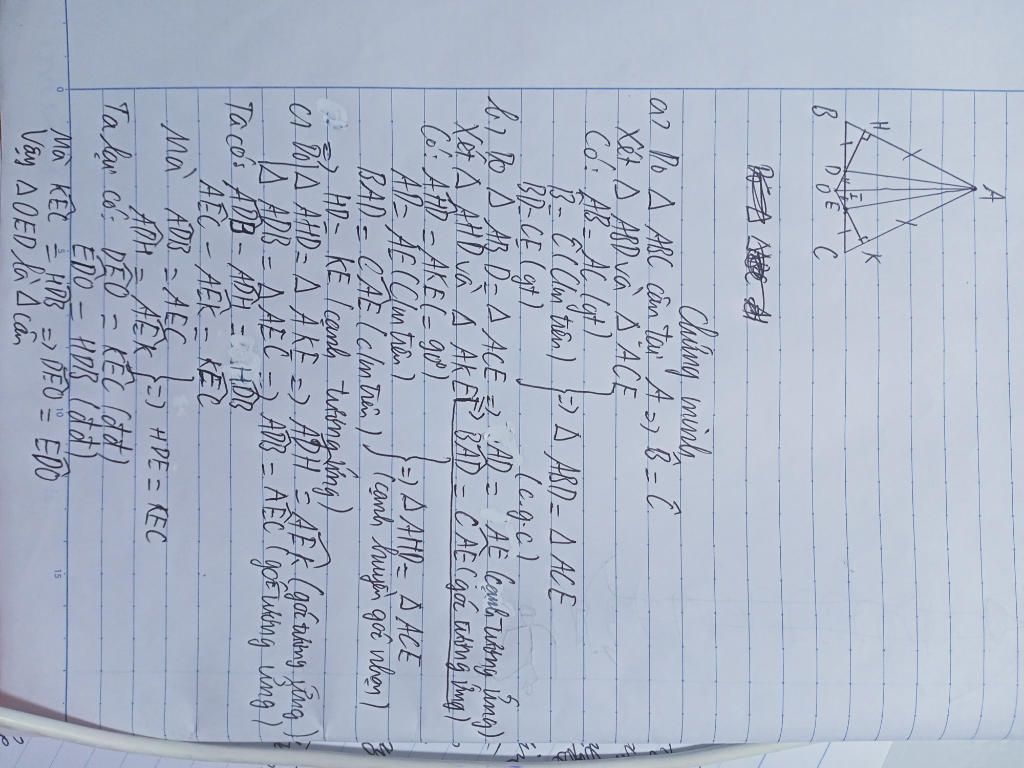 A
H
K
I
B
D
O
E
C
Chứng minh
a) Do Δ ABC cân tại A => B̂ = Ĉ
Xét Δ ABD và Δ ACE
Có: AB = AC (gt)
B̂ = Ĉ (c/m trên)
BD = CE (gt)
} => Δ ABD = Δ ACE
(c.g.c)
b) Do Δ ABD = Δ ACE => AD = AE (cạnh tương ứng)
=> BAD = CAE (góc tương ứng)
Xét Δ AHD và Δ AKE
Có: AHD = AKE (= 90°)
AD = AE (c/m trên)
BAD = CAE (c/m trên)
} => Δ AHD = Δ ACE
(cạnh huyền góc nhọn)
=> HD = KE (cạnh tương ứng)
c) Do Δ AHD = Δ AKE => ADH = AEK (góc tương ứng)
Δ ADB = Δ AEC => ADB = AEC (góc tương ứng)
Ta có: ADB - ADH = HDB
AEC - AEK = KEC
Mà ADB = AEC
ADH = AEK
} => HDE = KEC
Ta lại có: DEO = KEC (đđ)
EDO = HDB (đđ)
Mà KEC = HDB => DEO = EDO
Vậy Δ OED là Δ cân
0
5
10
15